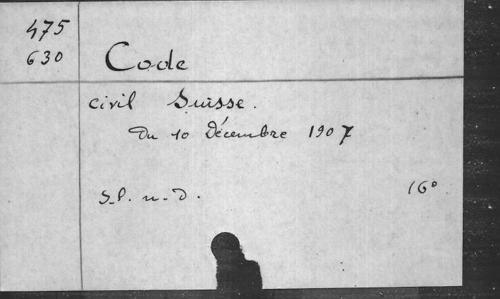 475
630
Code
civil Suisse.
Du 10 Décembre 1907
S.l. n. d.
16°